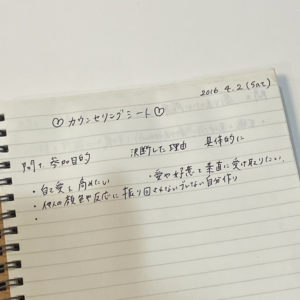 2016.4.2(Sat)
♡カウンセリングシート♡
学の目的 決断した理由 具体的に
・自己愛を高めたい ・愛や好意を素直に受け取りたい。
・他人の顔色や反応に振り回されないブレない自分作り
・